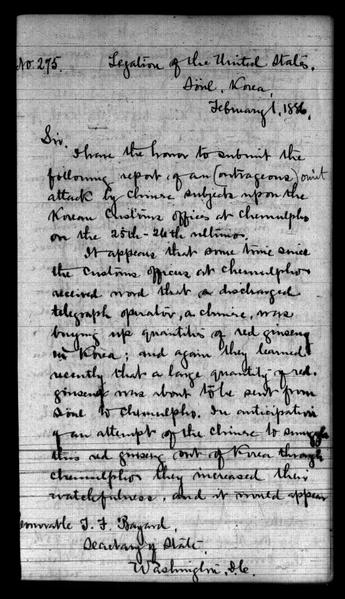 No. 275.
Legation of the United States,
Söul, Korea,
February 1, 1886.
Sir.
I have the honor to submit the
following report of an (outrageous) omit
attack by Chinese subjects upon the
Korean Customs offices at Chemulpho
on the 25th-26th ultimo.
It appears that some time since
the Customs officers at Chemulpho
received word that a discharged
telegraph operator, a Chinese, was
buying up quantities of red ginseng
in Korea; and again they learned
recently that a large quantity of red
ginseng was about to be sent from
Söul to Chemulpho. In anticipation
of an attempt of the Chinese to smuggle
this red ginseng out of Korea through
Chemulpho they increased their
watchfulness, and it would appear
Honorable T. F. Bayard,
Secretary of State.
Washington, D.C.